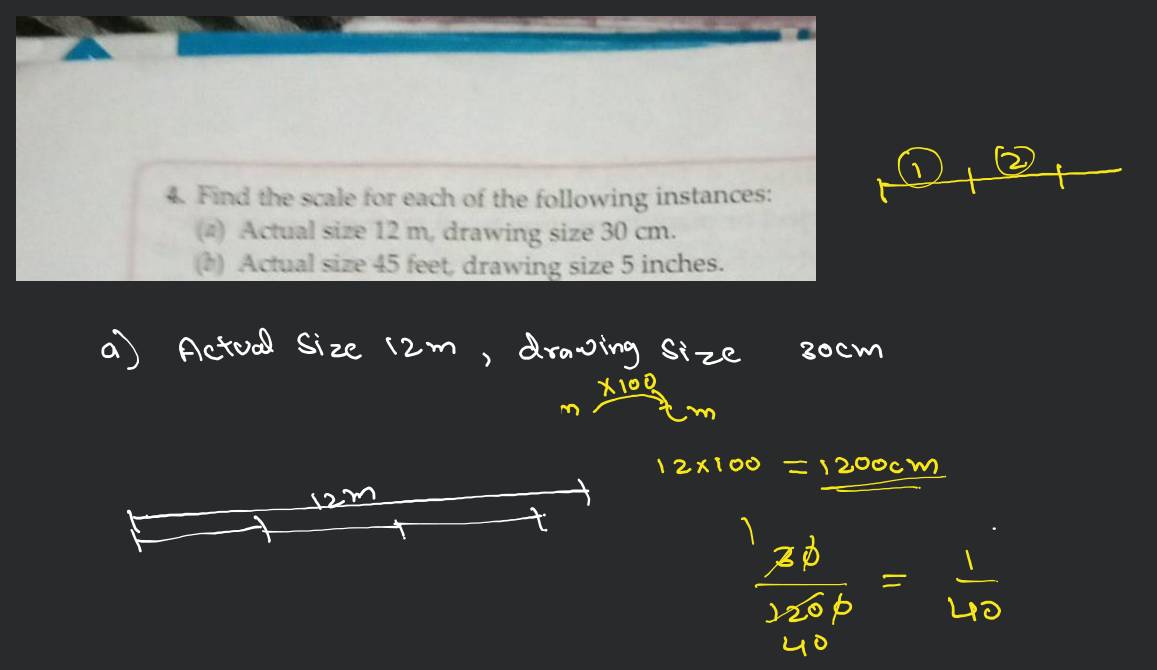 4. Find the scale for each of the following instances:
(a) Actual size 12 m, drawing size 30 cm.
(b) Actual size 45 feet, drawing size 5 inches.
1 2
a) Actual Size 12m, drawing size 30cm
x100
m cm
12x100 = 1200cm
12m
1
30 = 1
1200 40
40